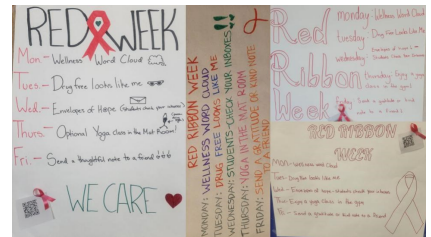 RED WEEK
Mon.- Wellness Word Cloud
Tues.- Drug free looks like me
Wed.- Envelopes of Hope (Students check your inboxes)
Thurs.- Optional Yoga class in the Mat Room!
Fri.- Send a thoughtful note to a friend
WE CARE
RED RIBBON WEEK
MONDAY: WELLNESS WORD CLOUD
TUESDAY: DRUG FREE LOOKS LIKE ME
WEDNESDAY: STUDENTS CHECK YOUR INBOXES
THURSDAY: YOGA IN THE MAT ROOM
FRIDAY: SEND A GRATITUDE OR KIND NOTE
TO A FRIEND
Red
Ribbon
Week
monday- Wellness Word Cloud
tuesday- Drug Free Looks Like Me
wednesday-
Thursday- Enjoy a yoga
class in the gym
Friday- Send a gratitude or kind
note to a friend
RED RIBBON
WEEK
Mon- Wellness word Cloud
Tues- Drug free looks like me
Wed- Envelopes of hope- Students check your inboxes
Thurs- Enjoy a yoga class in the gym
Fri- Send a gratitude or kind note to a friend